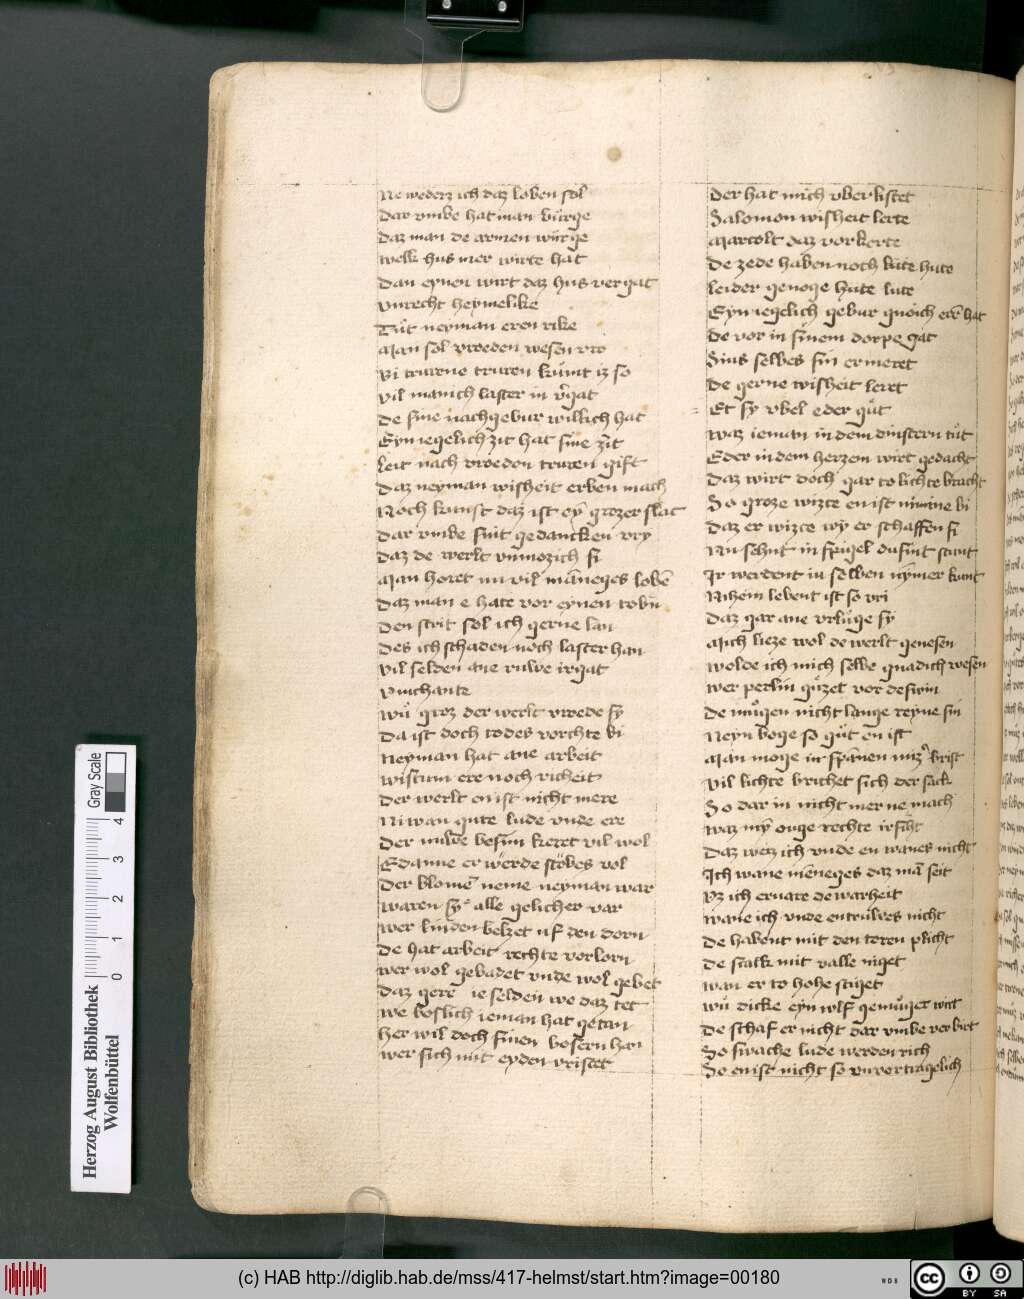 Ne wederz ich daz loben sol
Dar vmbe hat man bürge
Daz man de armen würge
Welk hus mer wirte hat
Dan eynen wirt daz hus vergat
Vnrecht heymelike
Tüt neyman eren rike
Man sol vroeden wesen vro
Bi trurene truren kümt iz so
Vil manich laster in v̄gat
De sine nachgebur willich hat
Eyn iegelich zit hat sine zit
Leit nach vroeden truren gift
Daz neyman wisheit erben mach
Noch kunst daz ist eȳ grozer slac
Dar vmbe sint gedancken vry
Daz de werlt vnmozich si
Man horet nu vil māneges lobē
Daz man e hate vor eynen tobin
Den strit sol ich gerne lan
Des ich schaden noch laster han
Vil selden ane ruwe irgat
Wů groz der werlt vroede sy
Da ist doch todes vorchte bi
Neyman hat ane arbeit
Wistum ere noch richeit
Der werlt en ist nicht mere
Ni wan gute lude vnde ere
Der nuwe besim keret vil wol
E danne er werde stöbes vol
Der blomē neme neyman war
Waren sy alle gelicher var
Wer linden belzet uf den dorn
De hat arbeit rechte vorlorn
Wer wol gebadet vnde wol gebet
Daz gere ie selden we daz tet
We boslich ieman hat getan
Her wil doch sinen bosern han
Wer sich mit eyden vristet
Der hat mich vberlistet
Salomon wisheit lerte
Marcolt daz vorkerte
De zede haben noch kate hute
Leider genoge hute lute
Eyn iegelich gebur gnoich erē hat
De vor in sinem dorpe gat
Sius selbes sin er meret
De gerne wisheit leret
Et sy vbel eder gůt
Waz ieman in dem dinstern tůt
Eder in dem herzem wirt gedacht
Daz wirt doch gar to lichte bracht
So groze wizce en ist nimine bi
Daz er wizce wy er schaffen si
Nu sehnt in spigel du sint stunt
Ir werdent iu selben nȳmer kunt
Nihein lebent ist so vri
Daz gar ane vrlüge sy
Mich lieze wol de werlt genesen
Wolde ich mich selbe gnadich wesen
Wer perlin gůzet vor de swin
De můgen nicht lange reyne sin
Neyn boge so gůt en ist
Man moge in spānen
Vil lichte brichet sich der sack
So dar in nicht mer ne mach
Waz mȳ ouge rechte irsiht
Daz wetz ich vnde en wanes nicht
Ich wane meneges daz mā seit
Vz ich eruare de warheit
Wane ich vnde entrůwes nicht
De habent mit den toren plicht
De scalk mit valle niget
Wan er to hohe stiget
Wů dicke eyn wlf gemůget wirt
De schaf er nicht dar vmbe verbirt
So swache lude werden rich
So en ist nicht so vnvortragelich
Herzog August Bibliothek
Wolfenbüttel
0 1 2 3 4
Gray Scale
(c) HAB http://diglib.hab.de/mss/417-helmst/start.htm?image=00180
WDB
cc
BY SA